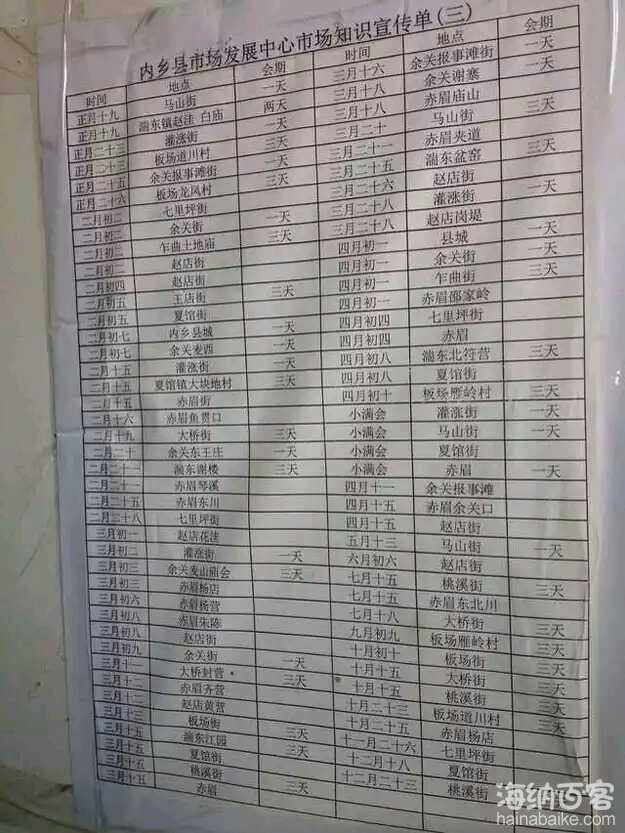 内乡县市场发展中心市场知识宣传单(三)
时间 地点 会期
正月十九 马山街 一天
正月十九 湍东镇赵洼 白庙 两天
正月二十三 灌涨街 一天
板场道川村 三天
正月二十五 余关报事滩街 一天
正月二十六 板场龙凤村 三天
二月初二 七里坪街
二月初二 余关街 一天
二月初二 乍曲土地庙 三天
二月初二 赵店街
二月初四 赵店街
二月初五 王店街 三天
二月初五 夏馆街
二月初七 内乡县城 一天
二月初七 余关麦西
二月十五 灌涨街 一天
二月十五 夏馆镇大块地村 三天
二月十五 赤眉街
二月十六 赤眉鱼贯口
二月十九 大桥街 三天
二月二十 余关东王庄 一天
二月二十一 湍东谢楼 三天
二月二十一 赤眉琴溪
二月二十五 赤眉东川
二月二十八 七里坪街
三月初一 赵店花洼
三月初二 灌涨街 一天
三月初三 余关麦山庙会 三天
三月初三 赤眉杨店
三月初六 赤眉杨营
三月初八 赤眉朱陈
三月初八 赵店街
三月初十 余关街 一天
三月十一 大桥封营 三天
三月十二 赤眉齐营
三月十二 赵店黄营
三月十三 板场街
三月十五 湍东江园 三天
三月十五 夏馆街 三天
三月十五 桃溪街
三月十五 赤眉 三天
时间 地点 会期
三月十六 余关报事滩街 一天
三月十八 余关谢寨 一天
三月十八 赤眉庙山
三月二十 马山街 三天
三月二十一 赤眉夹道
三月二十五 湍东盆窑 三天
三月二十六 赵店街
三月二十八 灌涨街 一天
赵店岗堤
四月初一 县城 一天
四月初一 余关街 一天
四月初一 乍曲街 三天
四月初一 赤眉邵家岭
四月初四 七里坪街
四月初四 赤眉
四月初八 湍东北符营 三天
四月初八 夏馆街
四月初十 板场雁岭村 三天
小满会 灌涨街 一天
小满会 马山街 一天
小满会 夏馆街
小满会 赤眉 一天
四月十一 余关报事滩
四月十五 赤眉余关口
四月十五 赵店街
五月十三 马山街 一天
六月初六 赵店街
七月十五 桃溪街 三天
七月十五 赤眉东北川
七月十八 大桥街 三天
九月初九 板场雁岭村 三天
十月初十 板场街 三天
十月十五 大桥街 三天
十月十五 桃溪街 三天
十月二十三 板场道川村 三天
十月二十五 赤眉杨店
十一月二十六 七里坪街
十二月十八 夏馆街
十二月二十三 桃溪街 三天
海纳百客
hainabaike.com